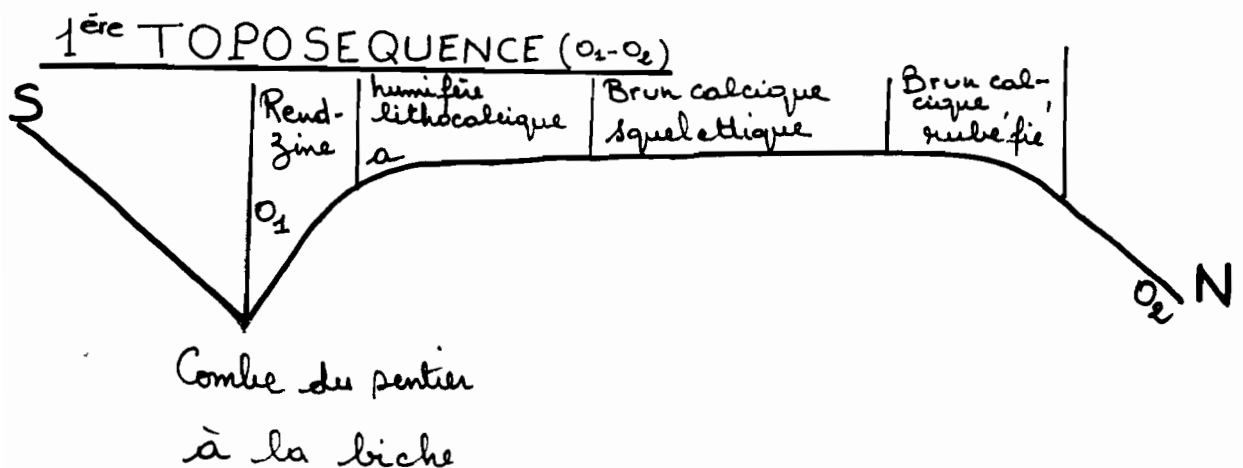 1ère TOPOSEQUENCE (O1-O2)
S
Rend-
zine
O1
humifère
lithocalcique
a
Brun calcique
squelettique
Brun cal-
cique
rubéfié
O2
N
Combe du sentier
à la biche